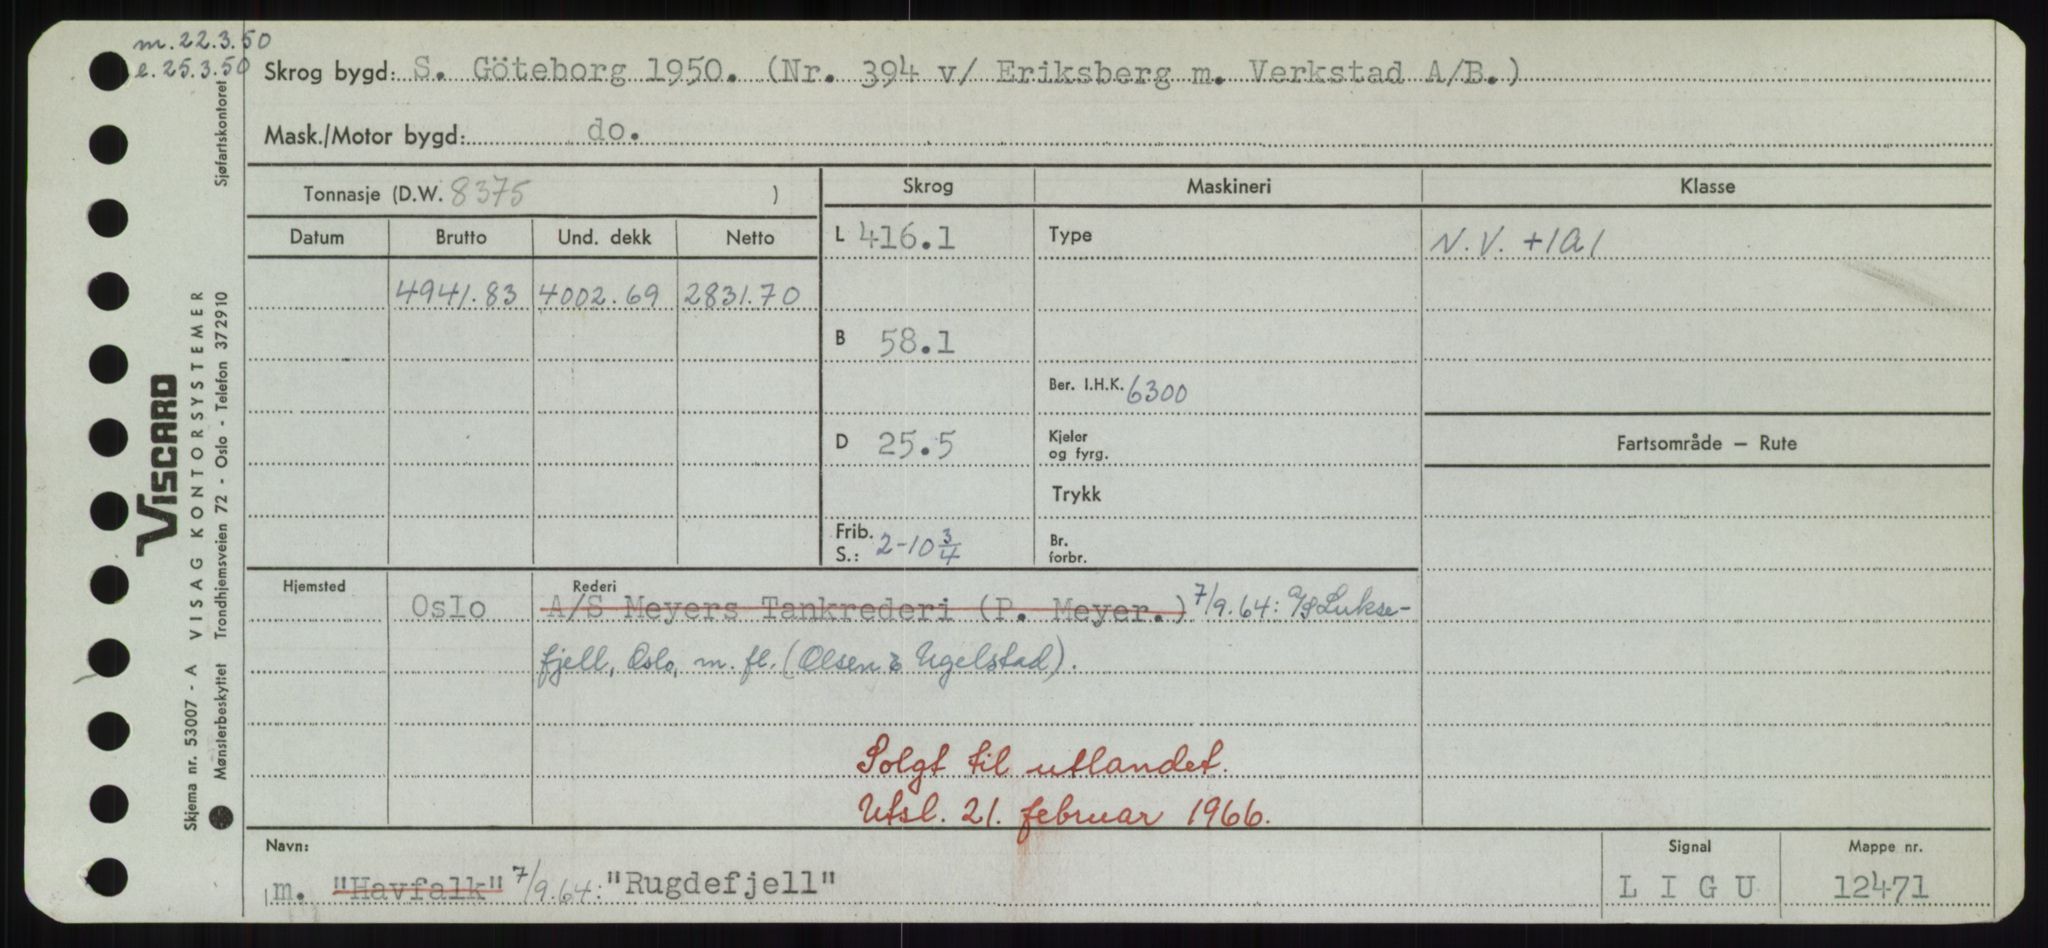 m. 22.3.50
e. 25.3.50
Skrog bygd: S. Göteborg 1950. (Nr. 394 v/ Eriksberg m. Verkstad A/B.)
Mask./Motor bygd: do.
Tonnasje (D.W. 8375 )
Datum Brutto Und. dekk Netto
4941.83 4002.69 2831.70
Skrog Maskineri Klasse
L 416.1 Type N.V. +1A1
B 58.1
Ber. I.H.K. 6300
D 25.5 Kjeler
og fyrg.
Fartsområde – Rute
Trykk
Frib.
S.: 2-10 3/4
Br.
forbr.
Hjemsted Rederi
Oslo A/S Meyers Tankrederi (P. Meyer.) 7/9.64: A/S Lukse-
fjell, Oslo, m. fl. (Olsen & Ugelstad).
Solgt til utlandet.
Utsl. 21. februar 1966.
Navn: Signal Mappe nr.
m. "Havfalk" 7/9.64: "Rugdefjell" L I G U 12471
Sjøfartskontoret
VISCARD
VISAG KONTORSYSTEMER
Trondhjemsveien 72 - Oslo - Telefon 372910
Skjema nr. 53007 - A
Mønsterbeskyttet